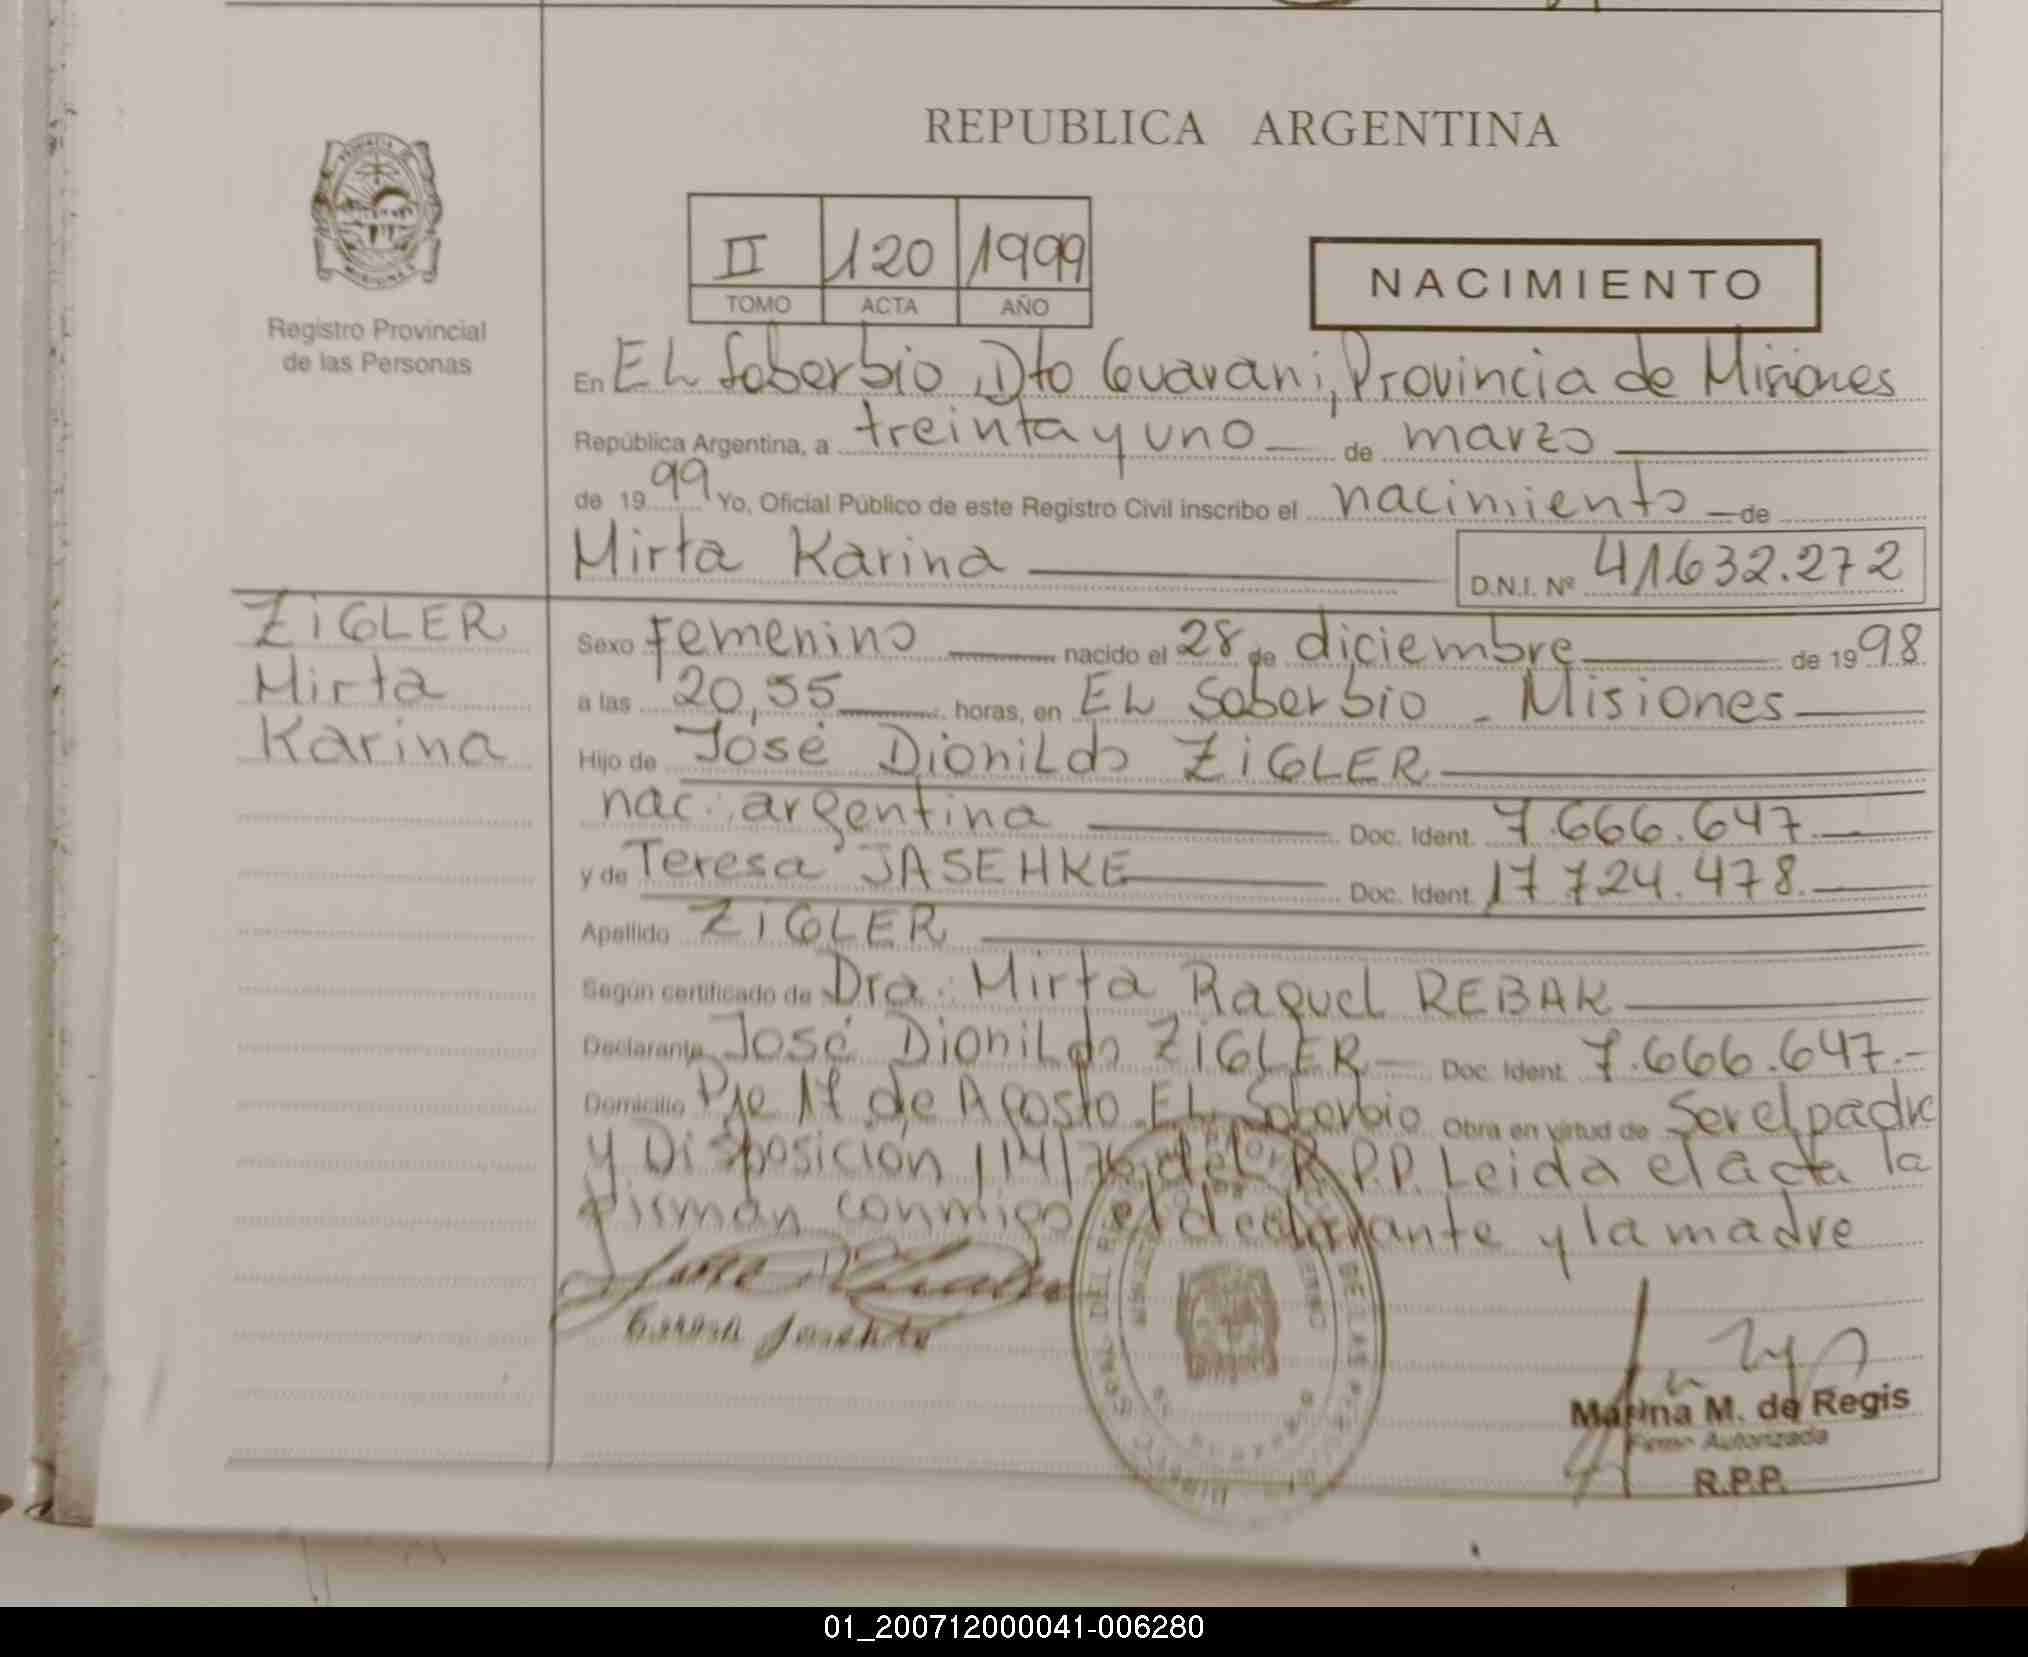 REPUBLICA ARGENTINA
II 120 1999
TOMO ACTA AÑO
NACIMIENTO
Registro Provincial
de las Personas
En EL Soberbio, Dto Guarani, Provincia de Misiones
República Argentina, a treinta y uno de marzo
de 1999 Yo, Oficial Público de este Registro Civil inscribo el nacimiento de
Mirta Karina D.N.I. Nº 41.632.272
ZIGLER
Mirta
Karina
Sexo Femenino nacido el 28 de diciembre de 1998
a las 20,55 horas, en EL Soberbio - Misiones
Hijo de José Dionildo ZIGLER
nac: argentina Doc. Ident. 7.666.647
y de Teresa JASEHKE Doc. Ident. 17 724.478.
Apellido ZIGLER
Según certificado de Dra. Mirta Raquel REBAK
Declarante José Dionildo ZIGLER Doc. Ident. 7.666.647.-
Domicilio Pje 17 de Agosto EL Soberbio Obra en virtud de Ser el padre
y Disposición 114/76 del R.P.P. Leida el acta la
firman conmigo el declarante y la madre
Marina M. de Regis
Firma Autorizada
R.P.P.
01_200712000041-006280